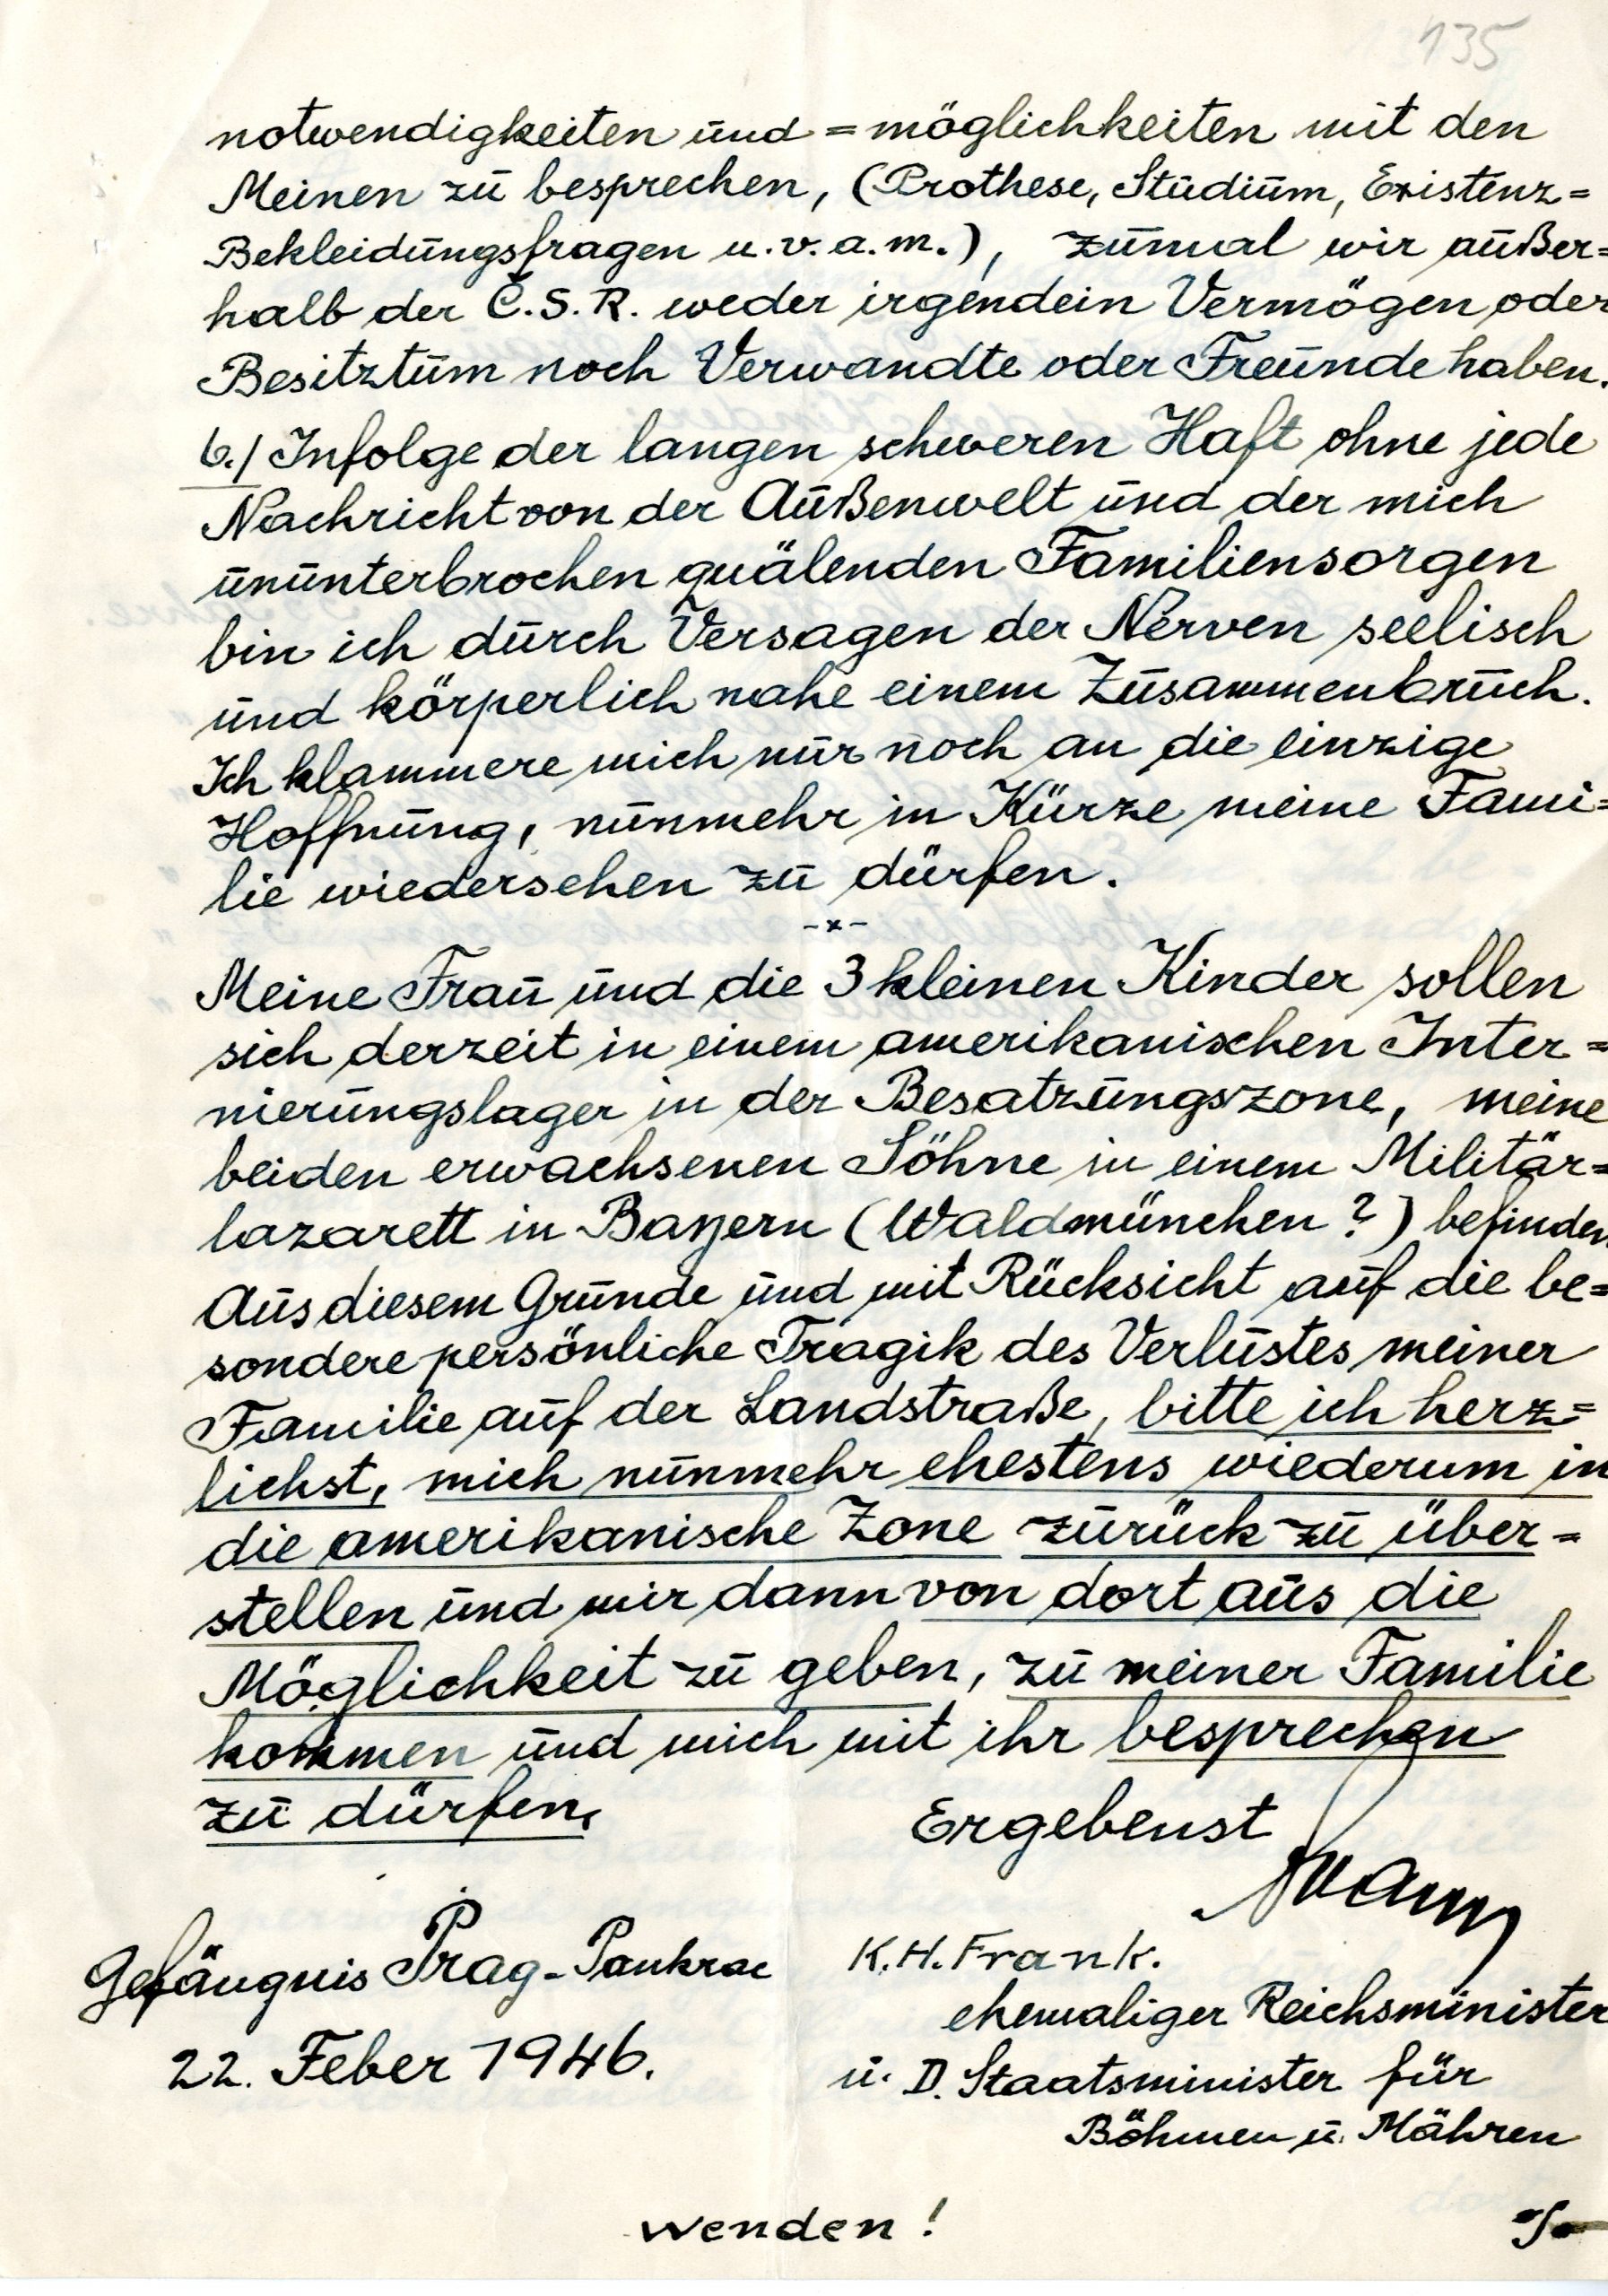 135
notwendigkeiten und =möglichkeiten mit den
Meinen zu besprechen, (Prothese, Studium, Existenz=
Bekleidungsfragen u.v.a.m.), zumal wir außer=
halb der Č.S.R. weder irgendein Vermögen oder
Besitztum noch Verwandte oder Freunde haben.
6./ Infolge der langen schweren Haft ohne jede
Nachricht von der Außenwelt und der mich
ununterbrochen quälenden Familiensorgen
bin ich durch Versagen der Nerven seelisch
und körperlich nahe einem Zusammenbruch.
Ich klammere mich nur noch an die einzige
Hoffnung, nunmehr in Kürze meine Fami=
lie wiedersehen zu dürfen.
-x-
Meine Frau und die 3 kleinen Kinder sollen
sich derzeit in einem amerikanischen Inter=
nierungslager in der Besatzungszone, meine
beiden erwachsenen Söhne in einem Militär=
lazarett in Bayern (Waldmünchen?) befinden.
Aus diesem Grunde und mit Rücksicht auf die be=
sondere persönliche Tragik des Verlustes meiner
Familie auf der Landstraße, bitte ich herz=
lichst, mich nunmehr ehestens wiederum in
die amerikanische Zone zurück zu über=
stellen und mir dann von dort aus die
Möglichkeit zu geben, zu meiner Familie
kommen und mich mit ihr besprechen
zu dürfen.
Ergebenst
Gefängnis Prag-Pankrac
22. Feber 1946.
K.H. Frank.
ehemaliger Reichsminister
u. D. Staatsminister für
Böhmen u. Mähren
wenden!